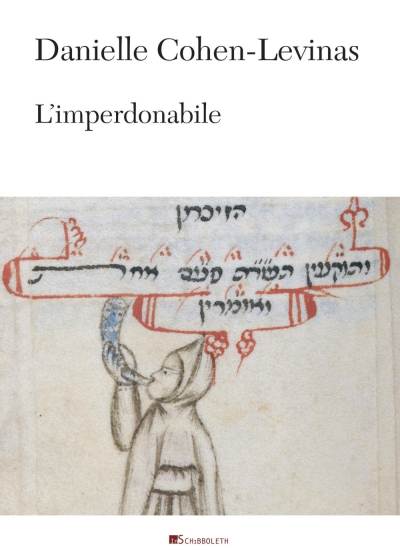 Danielle Cohen-Levinas
L'imperdonabile
הזיכרון
ותוקעין תשרת פעם אחת
ואומרין
inSCHIBBOLETH